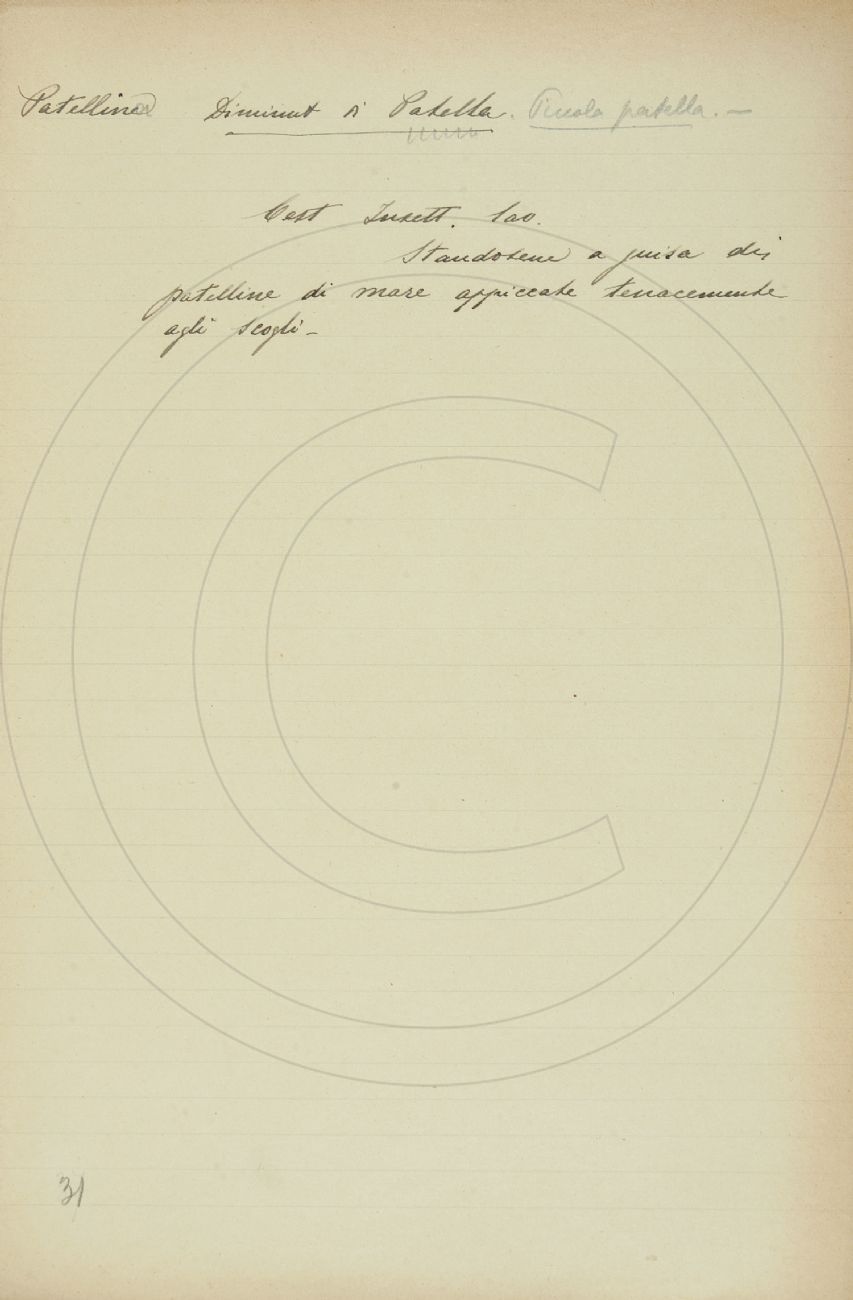 Patellina Diminut di Patella. Piccola patella. —
Cest Insett. 100.
Standosene a guisa di
patelline di mare appiccate tenacemente
agli scogli —
31